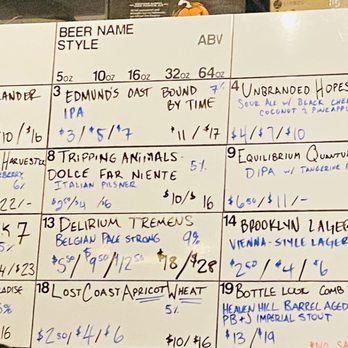 BEER NAME
STYLE ABV
5oz 10oz 16oz 32oz 64oz
LANDER
10/$16
3 EDMUND'S OAST BOUND 7%
IPA BY TIME
$3/$5/$7 $11/$17
4 UNBRANDED HOPES
SOUR ALE W/ BLACK CHE
COCONUT & PINEAPPL
$4/$7/$10
HARVESTER
6%
22/-
8 TRIPPING ANIMALS 5%
DOLCE FAR NIENTE
ITALIAN PILSNER
$2.50/$4/$6 $10/$16
9 EQUILIBRIUM QUANTU
DIPA W/ TANGERINE
$6.50/$11/-
K 7
4/$23
13 DELIRIUM TREMENS
BELGIAN PALE STRONG 9%
$5.50/$9.50/$12.50 $18/$28
14 BROOKLYN LAGER
VIENNA-STYLE LAGER
$2.50/$4/$6
RADISE
5%
16
18 LOST COAST APRICOT WHEAT
5%
$2.50/$4/$6 $10/$16
19 BOTTLE LOGIC COMB
HEAVEN HILL BARREL AGED
PB+J IMPERIAL STOUT
$13/$19
*NO SA